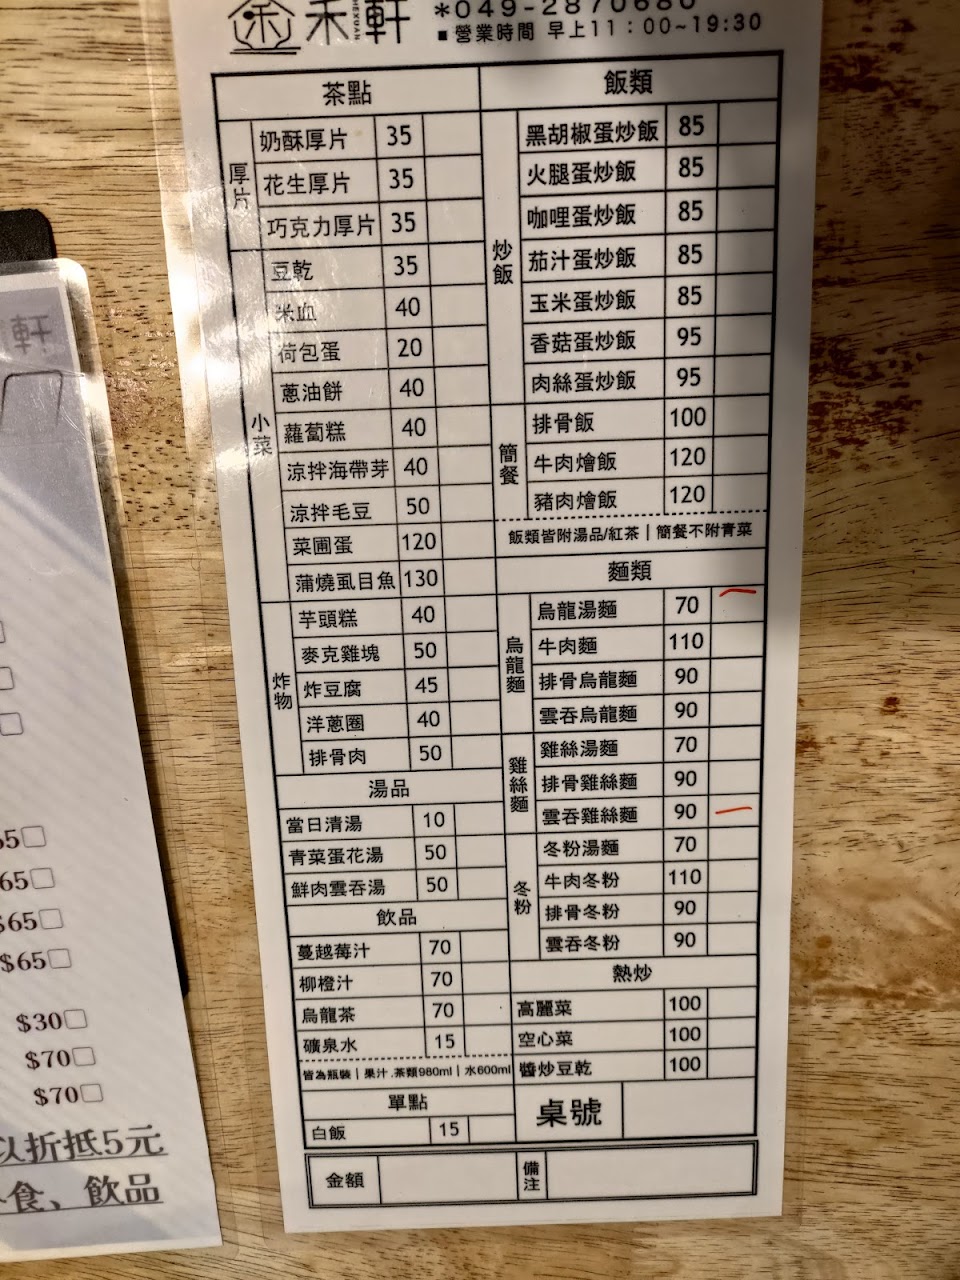 禾軒
HEXUAN
*049-2870680
■營業時間 早上11:00~19:30
茶點
厚片
奶酥厚片 35
花生厚片 35
巧克力厚片 35
小菜
豆乾 35
米血 40
荷包蛋 20
蔥油餅 40
蘿蔔糕 40
涼拌海帶芽 40
涼拌毛豆 50
菜圃蛋 120
蒲燒虱目魚 130
炸物
芋頭糕 40
麥克雞塊 50
炸豆腐 45
洋蔥圈 40
排骨肉 50
湯品
當日清湯 10
青菜蛋花湯 50
鮮肉雲吞湯 50
飲品
蔓越莓汁 70
柳橙汁 70
烏龍茶 70
礦泉水 15
皆為瓶裝|果汁.茶類980ml|水600ml
單點
白飯 15
飯類
炒飯
黑胡椒蛋炒飯 85
火腿蛋炒飯 85
咖哩蛋炒飯 85
茄汁蛋炒飯 85
玉米蛋炒飯 85
香菇蛋炒飯 95
肉絲蛋炒飯 95
簡餐
排骨飯 100
牛肉燴飯 120
豬肉燴飯 120
飯類皆附湯品/紅茶|簡餐不附青菜
麵類
烏龍麵
烏龍湯麵 70
牛肉麵 110
排骨烏龍麵 90
雲吞烏龍麵 90
雞絲麵
雞絲湯麵 70
排骨雞絲麵 90
雲吞雞絲麵 90
冬粉
冬粉湯麵 70
牛肉冬粉 110
排骨冬粉 90
雲吞冬粉 90
熱炒
高麗菜 100
空心菜 100
醬炒豆乾 100
桌號
金額
備注
軒
65□
65□
$65□
$65□
$30□
$70□
$70□
以折抵5元
食、飲品